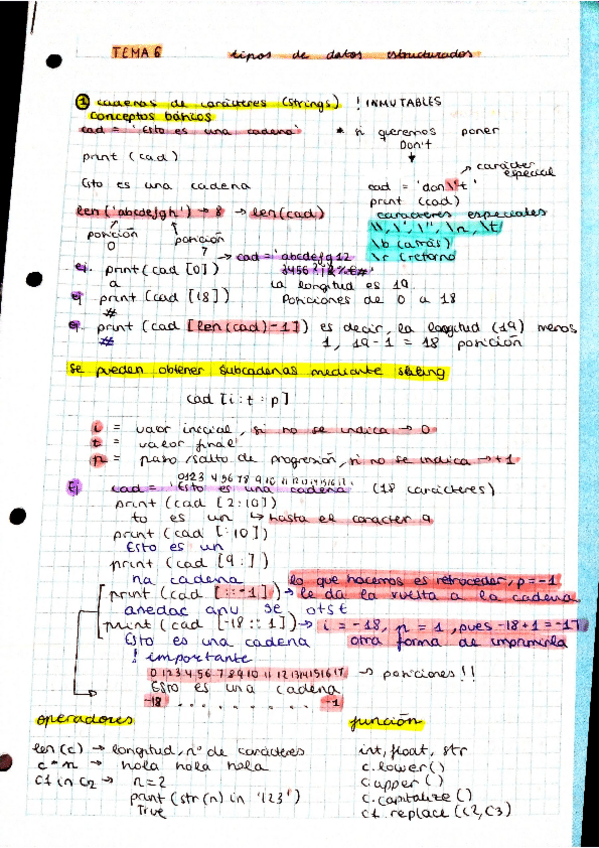 TEMA 6 tipos de datos estructurados
1 cadenas de carácteres (strings) ! INMUTABLES
conceptos básicos
cad = 'Esto es una cadena' * si queremos poner
Don't
print (cad)
carácter especial
Esto es una cadena cad = 'don\'t'
print (cad)
len('abcdefgh') → 8 → len(cad) caracteres especiales
\\, \', \", \n, \t
posición 0 posición 7
\b (atrás)
\r (retorno
→ cad = 'abcdefg12
ej. print(cad [0])
a la longitud es 19
ej print (cad [18]) Posiciones de 0 a 18
#
ej. print (cad [len(cad)-1]) es decir, la longitud (19) menos
# 1, 19-1 = 18 posición
se pueden obtener subcadenas mediante slicing
cad [i:t:p]
i = valor inicial, si no se indica → 0
t = valor final
p = paso/salto de progresión, si no se indica → +1
0 1 2 3 4 5 6 7 8 9 10 11 12 13 14 15 16 17
Ej cad = 'Esto es una cadena' (18 carácteres)
print (cad [2:10])
to es un ↳ hasta el caracter 9
print (cad [:10])
Esto es un
print (cad [9:])
na cadena lo que hacemos es retroceder, p=-1
print (cad [::-1]) → le da la vuelta a la cadena
anedac anu se otsE
print (cad [-18::1]) → i = -18, p = 1, pues -18+1 = -17
Esto es una cadena otra forma de imprimirla
! importante
0 1 2 3 4 5 6 7 8 9 10 11 12 13 14 15 16 17 → posiciones!!
Esto es una cadena
-18 . . . . . . . . . . -1
operadores función
len(c) → longitud, nº de carácteres int, float, str
c * n → hola hola hola c.lower()
c1 in c2 → n=2 c.upper()
print (str(n) in '123') c.capitalize()
True c1.replace (c2,c3)